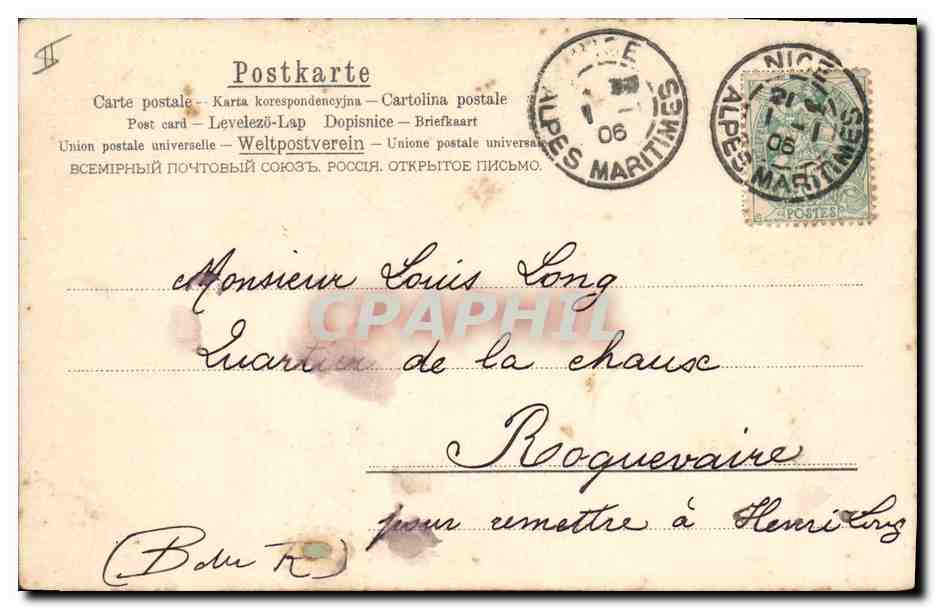 II
Postkarte
Carte postale — Karta korespondencyjna — Cartolina postale
Post card — Levelező-Lap Dopisnice — Briefkaart
Union postale universelle — Weltpostverein — Unione postale universale
ВСЕМІРНЫЙ ПОЧТОВЫЙ СОЮЗЪ. РОССІЯ. ОТКРЫТОЕ ПИСЬМО.
NICE
1 - 1
06
ALPES MARITIMES
NICE
21
1 - 1
06
ALPES MARITIMES
POSTES
Monsieur Louis Long
CPAPHIL
Quartier de la chaux
Roquevaire
pour remettre à Henri Long
(B du R)